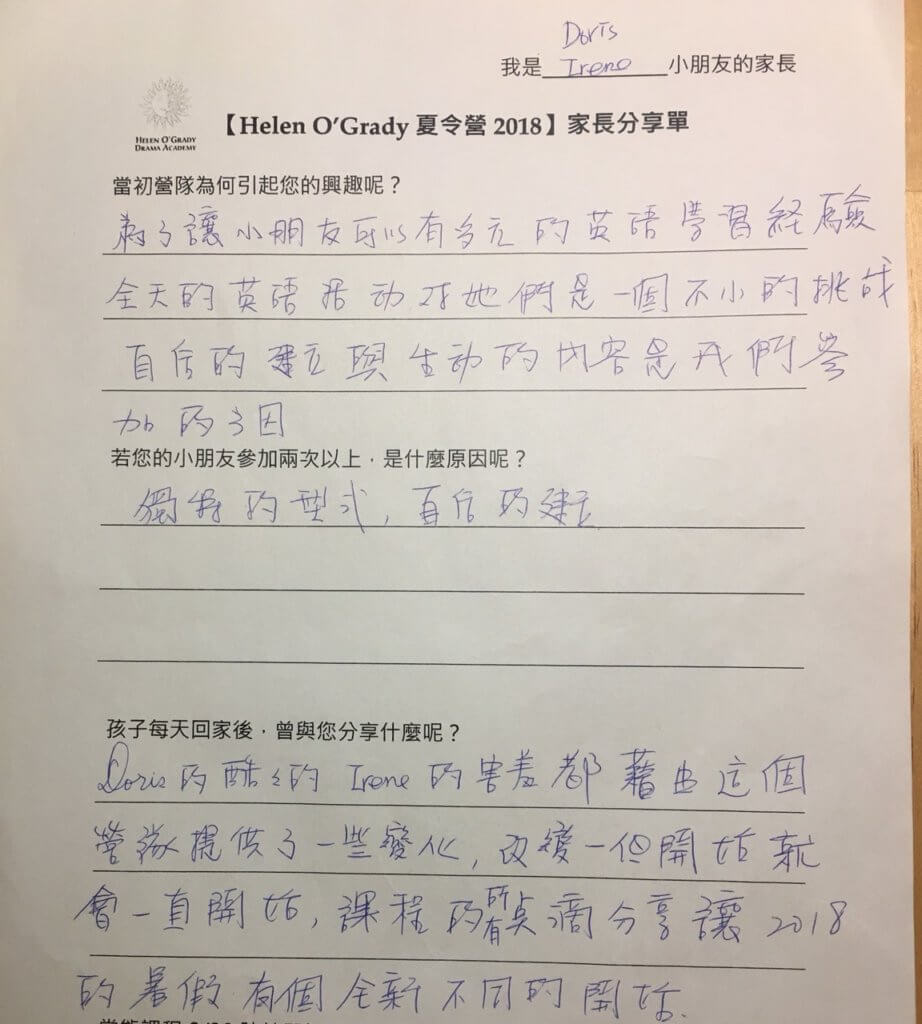 Doris
我是 Irene 小朋友的家長
HELEN O'GRADY
DRAMA ACADEMY
【Helen O'Grady 夏令營 2018】家長分享單
當初營隊為何引起您的興趣呢？
為了讓小朋友可以有多元的英語學習経驗
全天的英語活动对她們是一個不小的挑战
自信的建立與生动的內容是我們参
加的主因
若您的小朋友參加兩次以上，是什麼原因呢？
獨特的型式，自信的建立
孩子每天回家後，曾與您分享什麼呢？
Doris 的酷酷的 Irene 的害羞都藉由這個
營隊提供了一些變化，改變一但開始就
會一直開始，課程的所有點滴分享讓 2018
的暑假有個全新不同的開始.